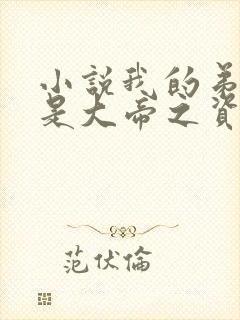 小說我的弟
是大帝之資
范伏倫